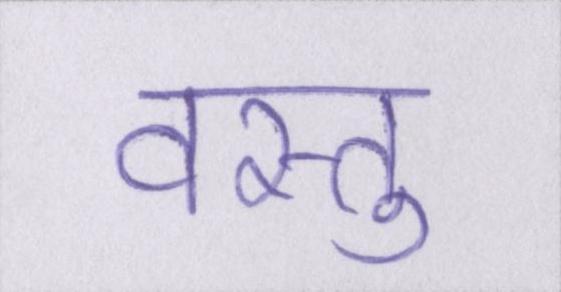 वस्तु